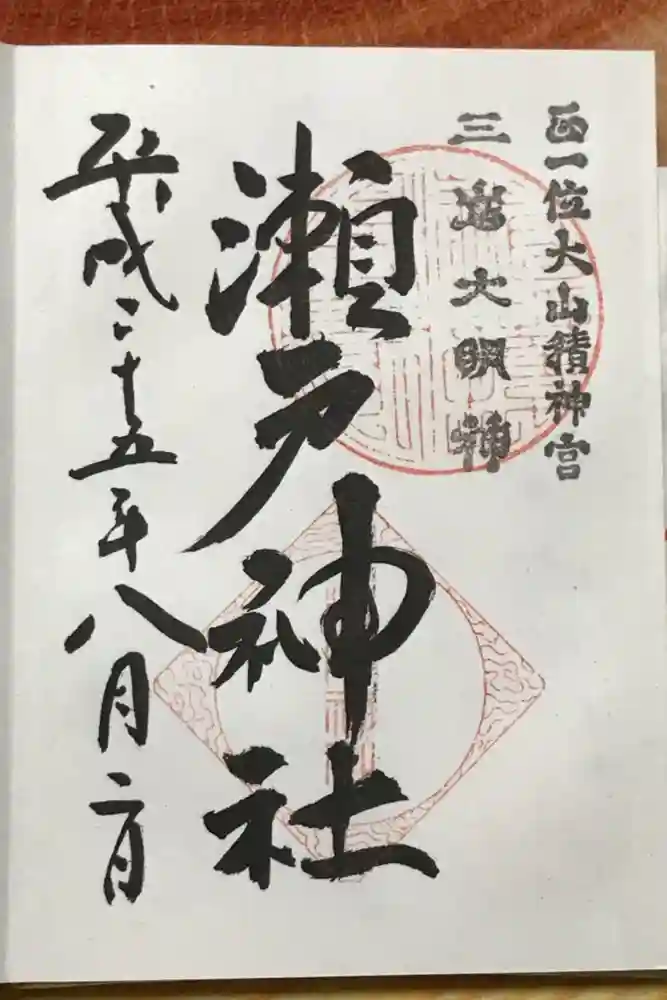 正一位大山積神宮
三嶌大明神
瀬戸神社
平成二十五年八月二日